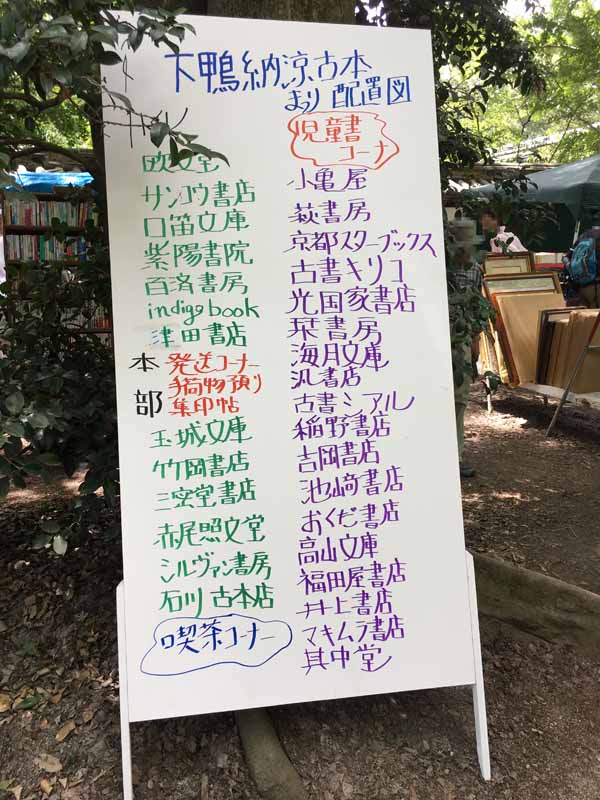 下鴨納涼古本
まつり配置図
欧文堂
サンコウ書店
口笛文庫
紫陽書院
百済書房
indigo book
津田書店
本部
発送コーナー
荷物預り
集印帖
玉城文庫
竹岡書店
三密堂書店
赤尾照文堂
シルヴァン書房
石川古本店
喫茶コーナー
児童書
コーナ
小亀屋
萩書房
京都スターブックス
古書キリコ
光国家書店
栞書房
海月文庫
汎書店
古書ミアル
稲野書店
吉岡書店
池崎書店
おくだ書店
高山文庫
福田屋書店
井上書店
マキムラ書店
其中堂